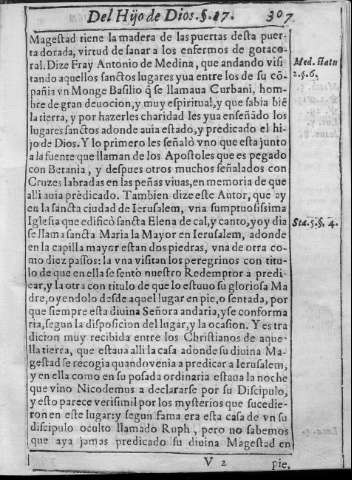 Del Hijo de Dios. §. 17. 307
Magestad tiene la madera de las puertas desta puer
ta dorada, virtud de sanar a los enfermos de gotaco-
ral. Dize Fray Antonio de Medina, que andando visi
tando aquellos sanctos lugares yua entre los de su cõ-
pañia vn Monge Basilio q̃ se llamaua Curbani, hom-
bre de gran deuocion, y muy espiritual, y que sabia biẽ
la tierra, y por hazerles charidad les yua enseñãdo los
lugares sanctos adonde auia estado, y predicado el hi-
jo de Dios. Y lo primero les señalò vno que esta junto
a la fuente que llaman de los Apostoles que es pegado
con Betania, y despues otros muchos señalados con
Cruzes labradas en las peñas viuas, en memoria de que
alli auia predicado. Tambien dize este Autor, que ay
en la sancta ciudad de Ierusalem, vna sumptuosissima
Iglesia que edificò sancta Elena de cal, y canto, y oy dia
se llama sancta Maria la Mayor en Ierusalem, adonde
en la capilla mayor estan dos piedras, vna de otra co-
mo diez passos: la vna visitan los peregrinos con titu-
lo de que en ella se sentò nuestro Redemptor a predi-
car, y la otra con titulo de que lo estuuo su gloriosa Ma
dre, oyendolo desde aquel lugar en pie, o sentada, por
que siempre esta diuina Señora andaria, y se conforma
ria, segun la disposicion del lugar, y la ocasion. Y es tra
dicion muy recibida entre los Christianos de aque-
lla tierra, que estaua alli la casa adonde su diuina Ma-
gestad se recogia quando venia a predicar a Ierusalem,
y en ella como en su posada ordinaria estaua la noche
que vino Nicodemus a declararse por su Discipulo,
y esto parece verisimil por los mysterios que sucedie-
ron en este lugar: y segun fama era esta casa de vn su
discipulo oculto llamado Ruph, pero no sabemos
que aya jamas predicado su diuina Magestad en
V 2 pie,
Med. Statu
2. §. 6.
Sta. 5. §. 4.